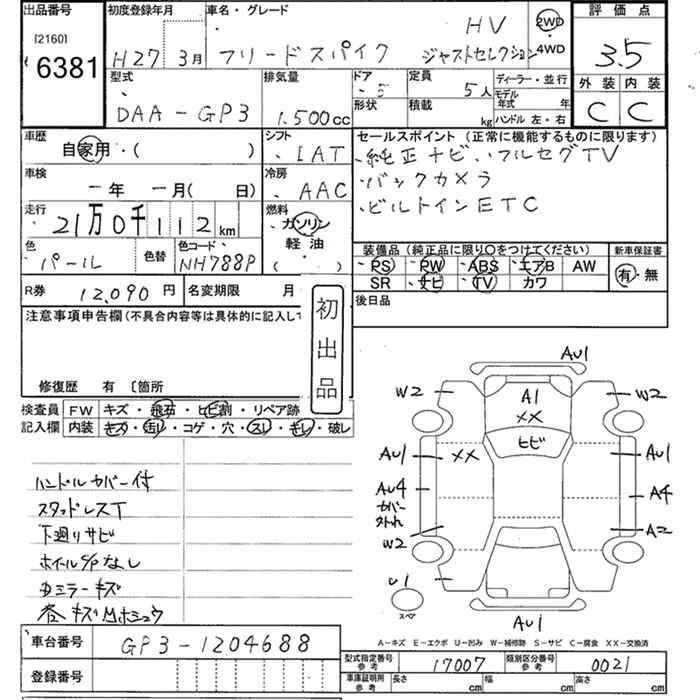 出品番号
[2160]
6381
初度登録年月
H27 3月
車名・グレード
HV
フリードスパイク ジャストセレクション
2WD
・4WD
評価点
3.5
外装 内装
C C
型式
DAA-GP3
排気量
1.500cc
ドア
5
形状
定員
5人
積載
kg
ディーラー・並行
モデル年式 年
ハンドル 左・右
車歴
自家用・( )
シフト
IAT
セールスポイント (正常に機能するものに限ります)
純正ナビ、フルセグTV
バックカメラ
ビルトインETC
車検
ー年 ー月( 日)
冷房
AAC
走行
21万0千112km
燃料
ガソリン
軽油
( ・ )
色
パール
色替
色コード
NH788P
装備品 (純正品に限り○をつけてください)
PS PW ABS エアB AW
SR ナビ TV カワ
新車保証書
有・無
R券 12,090円
名変期限 月
後日品
注意事項申告欄(不具合内容等は具体的に記入して
初出品
修復歴 有 〔箇所
検査員
記入欄
FW キズ・飛石・ヒビ割・リペア跡
内装 キズ・汚レ・コゲ・穴・スレ・キレ・破レ
ハンドルカバー付
スタッドレスT
下廻りサビ
ホイールS/Pなし
Dミラーキズ
AU1
W2 A1 W2
XX
ヒビ
AU1 XX AU1
AU4 A4
カバー
外れ
A2
W2
U1
スペア
AU1
A-キズ E-エクボ U-凹み W-補修跡 S-サビ C-腐食 XX-交換済
車台番号 GP3-1204688
登録番号
型式指定番号
参考
17007
類別区分番号
参考
0021
車庫証明用
参考
長さ cm 幅 cm 高さ cm